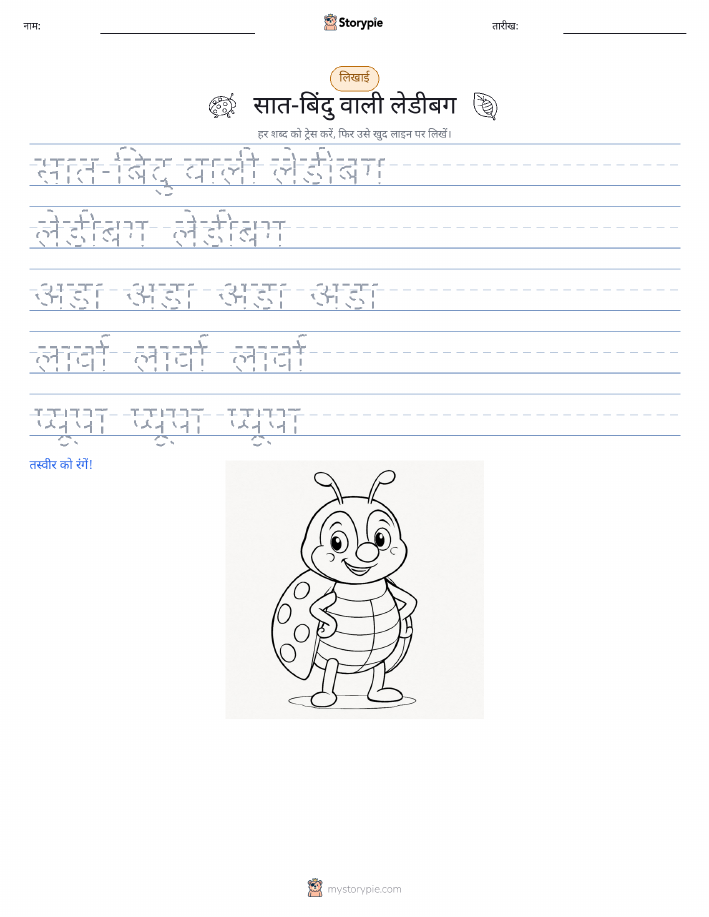 नाम:
Storypie
तारीख:
लिखाई
सात-बिंदु वाली लेडीबग
हर शब्द को ट्रेस करें, फिर उसे खुद लाइन पर लिखें।
सात-बिंदु वाली लेडीबग
लेडीबग लेडीबग
अंडा अंडा अंडा अंडा
लार्वा लार्वा लार्वा
प्यूपा प्यूपा प्यूपा
तस्वीर को रंगें!
mystorypie.com